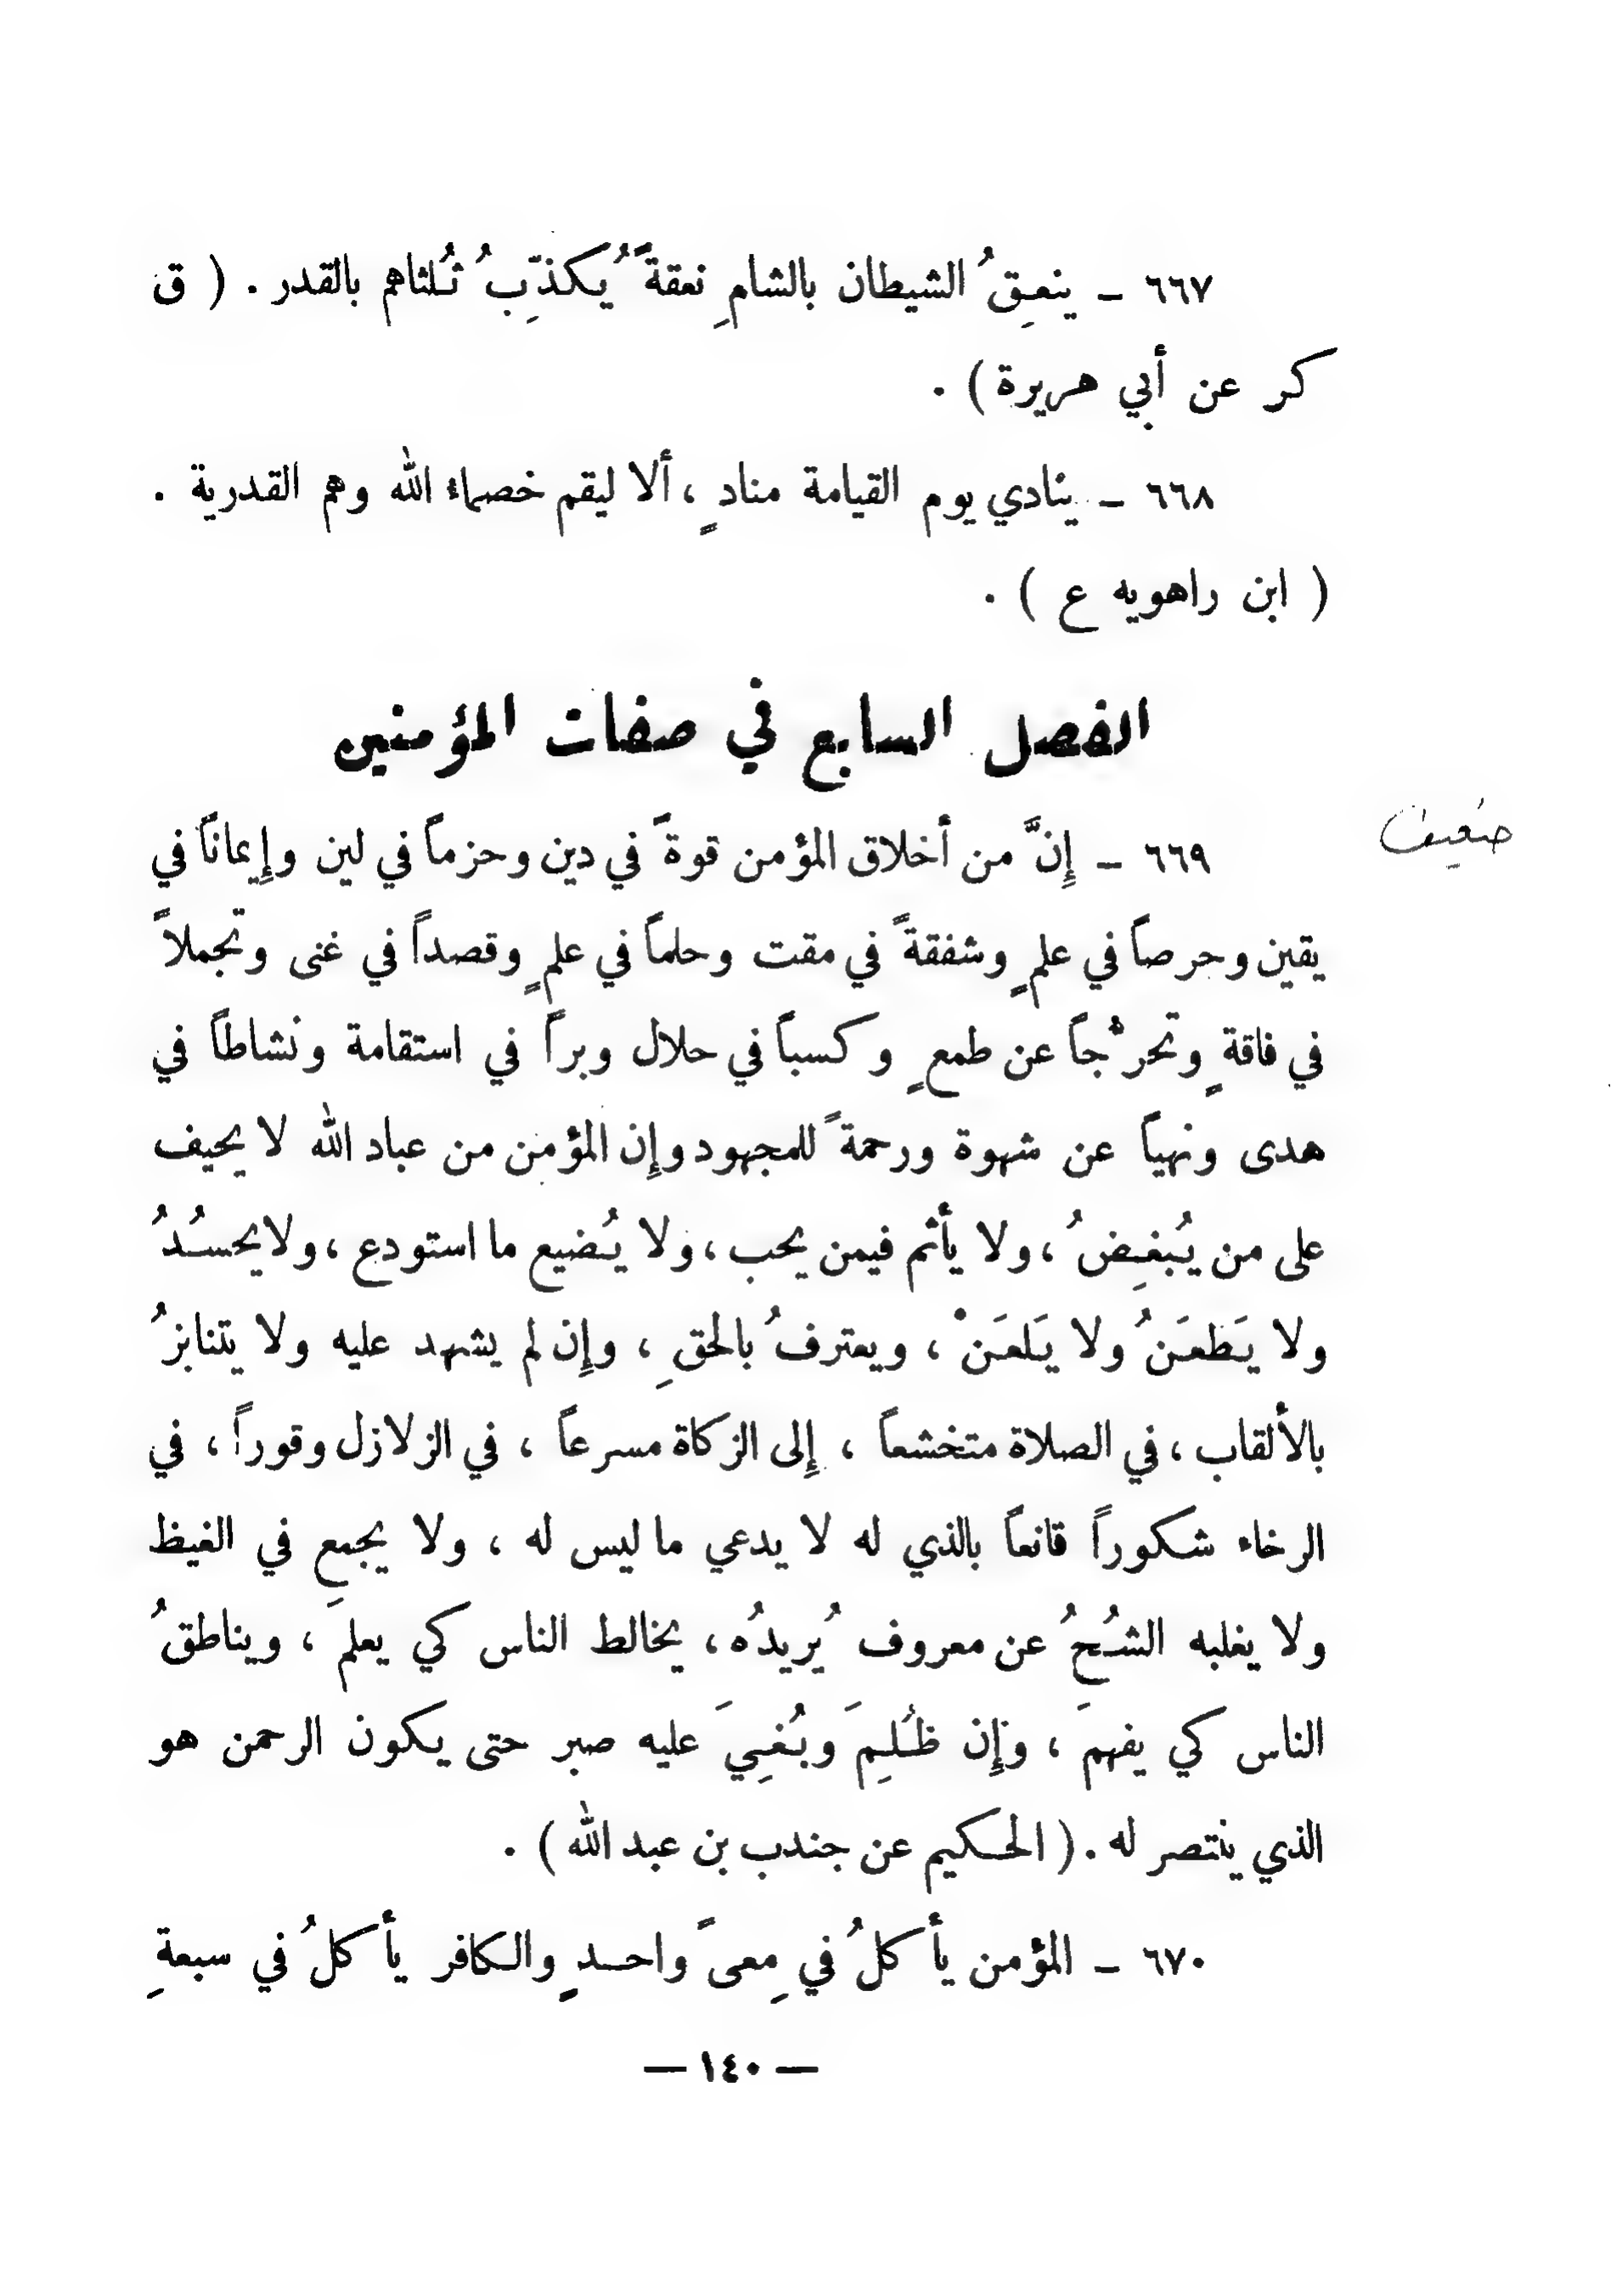 ٦٦٧ – ينعِقُ الشيطان بالشامِ نعقةً يُكذِّبُ ثُلثاهم بالقدر . ( ق
كر عن أبي هريرة ) .
٦٦٨ – ينادي يوم القيامة منادٍ ، ألا ليقم خصماء الله وهم القدرية .
( ابن راهويه ع ) .
الفصل السابع في صفات المؤمنين
ضعيف
٦٦٩ – إِنَّ من أخلاق المؤمن قوةً في دين وحزماً في لين وإِيماناً في
يقين وحرصاً في علمٍ وشفقةً في مقت وحلماً في علمٍ وقصداً في غنى وتجملاً
في فاقةٍ وتحرُّجاً عن طمعٍ وكسباً في حلال وبراً في استقامة ونشاطاً في
هدى ونهياً عن شهوة ورحمةً للمجهود وإِن المؤمن من عباد الله لا يحيف
على من يُبغِضُ ، ولا يأثم فيمن يحب ، ولا يُضيع ما استودع ، ولا يحسُدُ
ولا يَطعَنُ ولا يَلعَنْ ، ويعترفُ بالحقِ ، وإِن لم يشهد عليه ولا يتنابزُ
بالألقاب ، في الصلاة متخشعاً ، إِلى الزكاة مسرعاً ، في الزلازل وقوراً ، في
الرخاء شكوراً قانعاً بالذي له لا يدعي ما ليس له ، ولا يجمع في الغيظ
ولا يغلبه الشُحُ عن معروف يُريدُه ، يخالط الناس كي يعلمَ ، ويناطقُ
الناس كي يفهمَ ، وإِن ظُلِمَ وبُغِيَ عليه صبر حتى يكون الرحمن هو
الذي ينتصر له . ( الحكيم عن جندب بن عبد الله ) .
٦٧٠ – المؤمن يأكلُ في مِعىً واحدٍ والكافر يأكلُ في سبعةِ
— ١٤٠ —